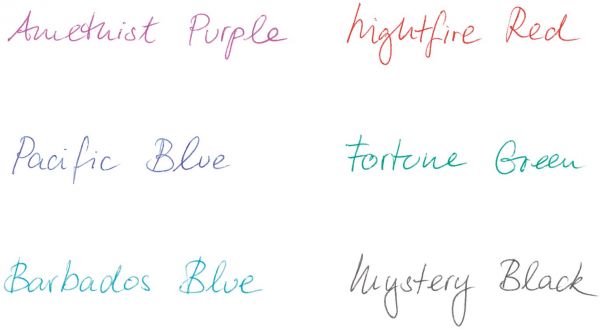 Amethist Purple
Nightfire Red
Pacific Blue
Fortune Green
Barbados Blue
Mystery Black